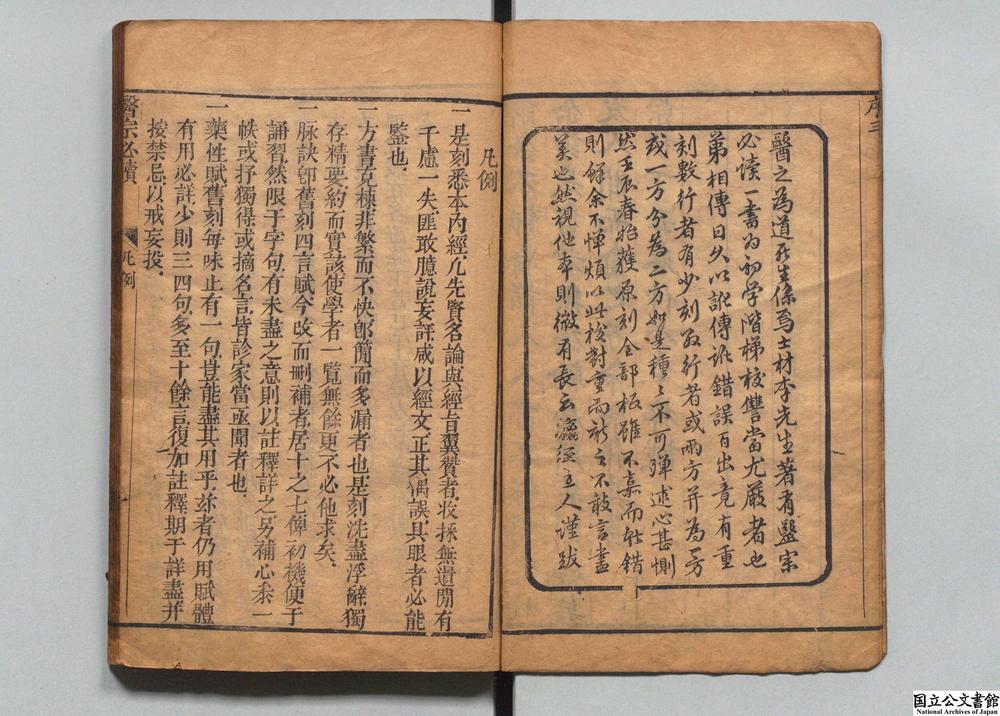 序三
醫之為道死生係焉士材李先生著有醫宗
必讀一書為初学階梯校讐當尤嚴者也
苐相傳日久以訛傳訛錯誤百出竟有重
刻數行者有少刻数行者或兩方并為一方
或一方分為二方如是種〻不可殫述心甚惻
然壬辰春始獲原刻全部板雖不嘉而錯
則鮮余不憚煩以此校對重而新之不敢言盡
美也然視他本則微有長云瀛經主人谨跋
凡例
一是刻悉本內經凡先賢名論與經旨翼贊者收採無遺間有
千慮一失匪敢臆說妄評咸以經文正其渦誤具眼者必能
鑒也
一方書充棟非繁而不快卽簡而多漏者也是刻洗盡浮辭獨
存精要約而實該使學者一覽無餘更不必他求矣
一脉訣卽舊刻四言賦今改而刪補者居十之七俾初機便于
誦習然限于字句有未盡之意則以註釋詳之另補心叅一
帙或抒獨得或摘名言皆診家當亟聞者也
一藥性賦舊刻每味止有一句豈能盡其用乎玆者仍用賦體
有用必詳少則三四句多至十餘言復加註釋期于詳盡并
按禁忌以戒妄投
醫宗必讀
凡例
一
国立公文書館
National Archives of Japan